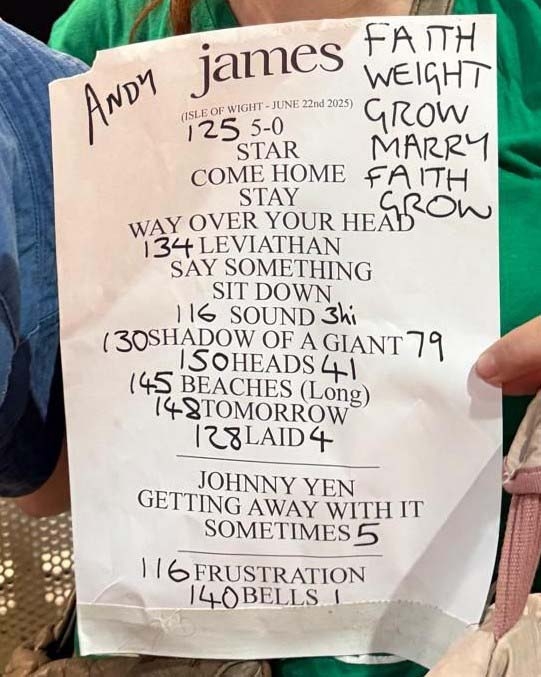 ANDY
james
FAITH
WEIGHT
GROW
MARRY
FAITH
GROW
(ISLE OF WIGHT - JUNE 22nd 2025)
125 5-0
STAR
COME HOME
STAY
WAY OVER YOUR HEAD
134 LEVIATHAN
SAY SOMETHING
SIT DOWN
116 SOUND 3hi
130 SHADOW OF A GIANT 79
150 HEADS 41
145 BEACHES (Long)
148 TOMORROW
128 LAID 4
JOHNNY YEN
GETTING AWAY WITH IT
SOMETIMES 5
116 FRUSTRATION
140 BELLS 1